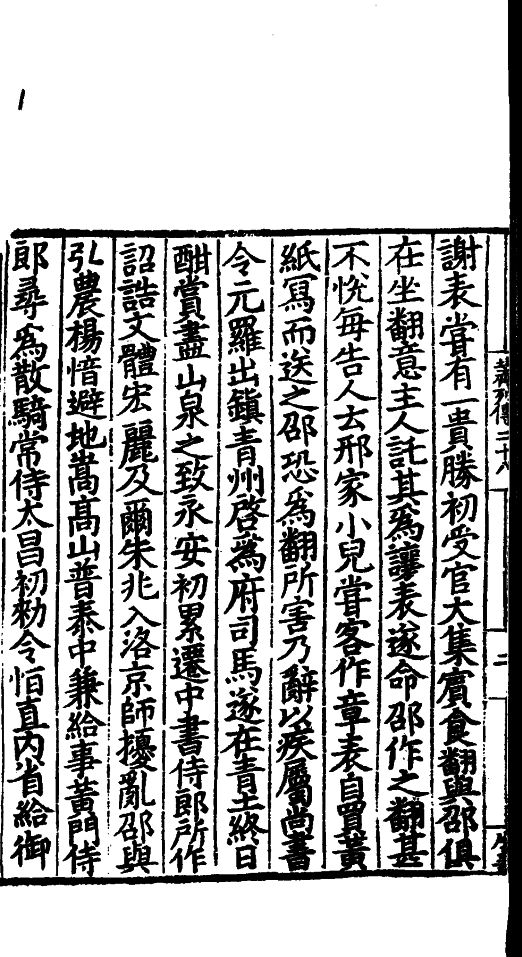 謝表嘗有一貴勝初受官大集賓食翻與邵俱
在坐翻意主人託其爲讓表遂命邵作之翻甚
不恱每告人云邢家小兒嘗客作章表自買黃
紙冩而送之邵恐爲翻所害乃辭以疾屬尚書
令元羅出鎮青州啓爲府司馬遂在青土終日
酣賞盡山泉之致永安初累遷中書侍郎所作
詔誥文體宏麗及爾朱兆入洛京師擾亂邵與
弘農楊愔避地嵩髙山普泰中兼給事黃門侍
郎尋爲散騎常侍太昌初勑令恒直内省給御